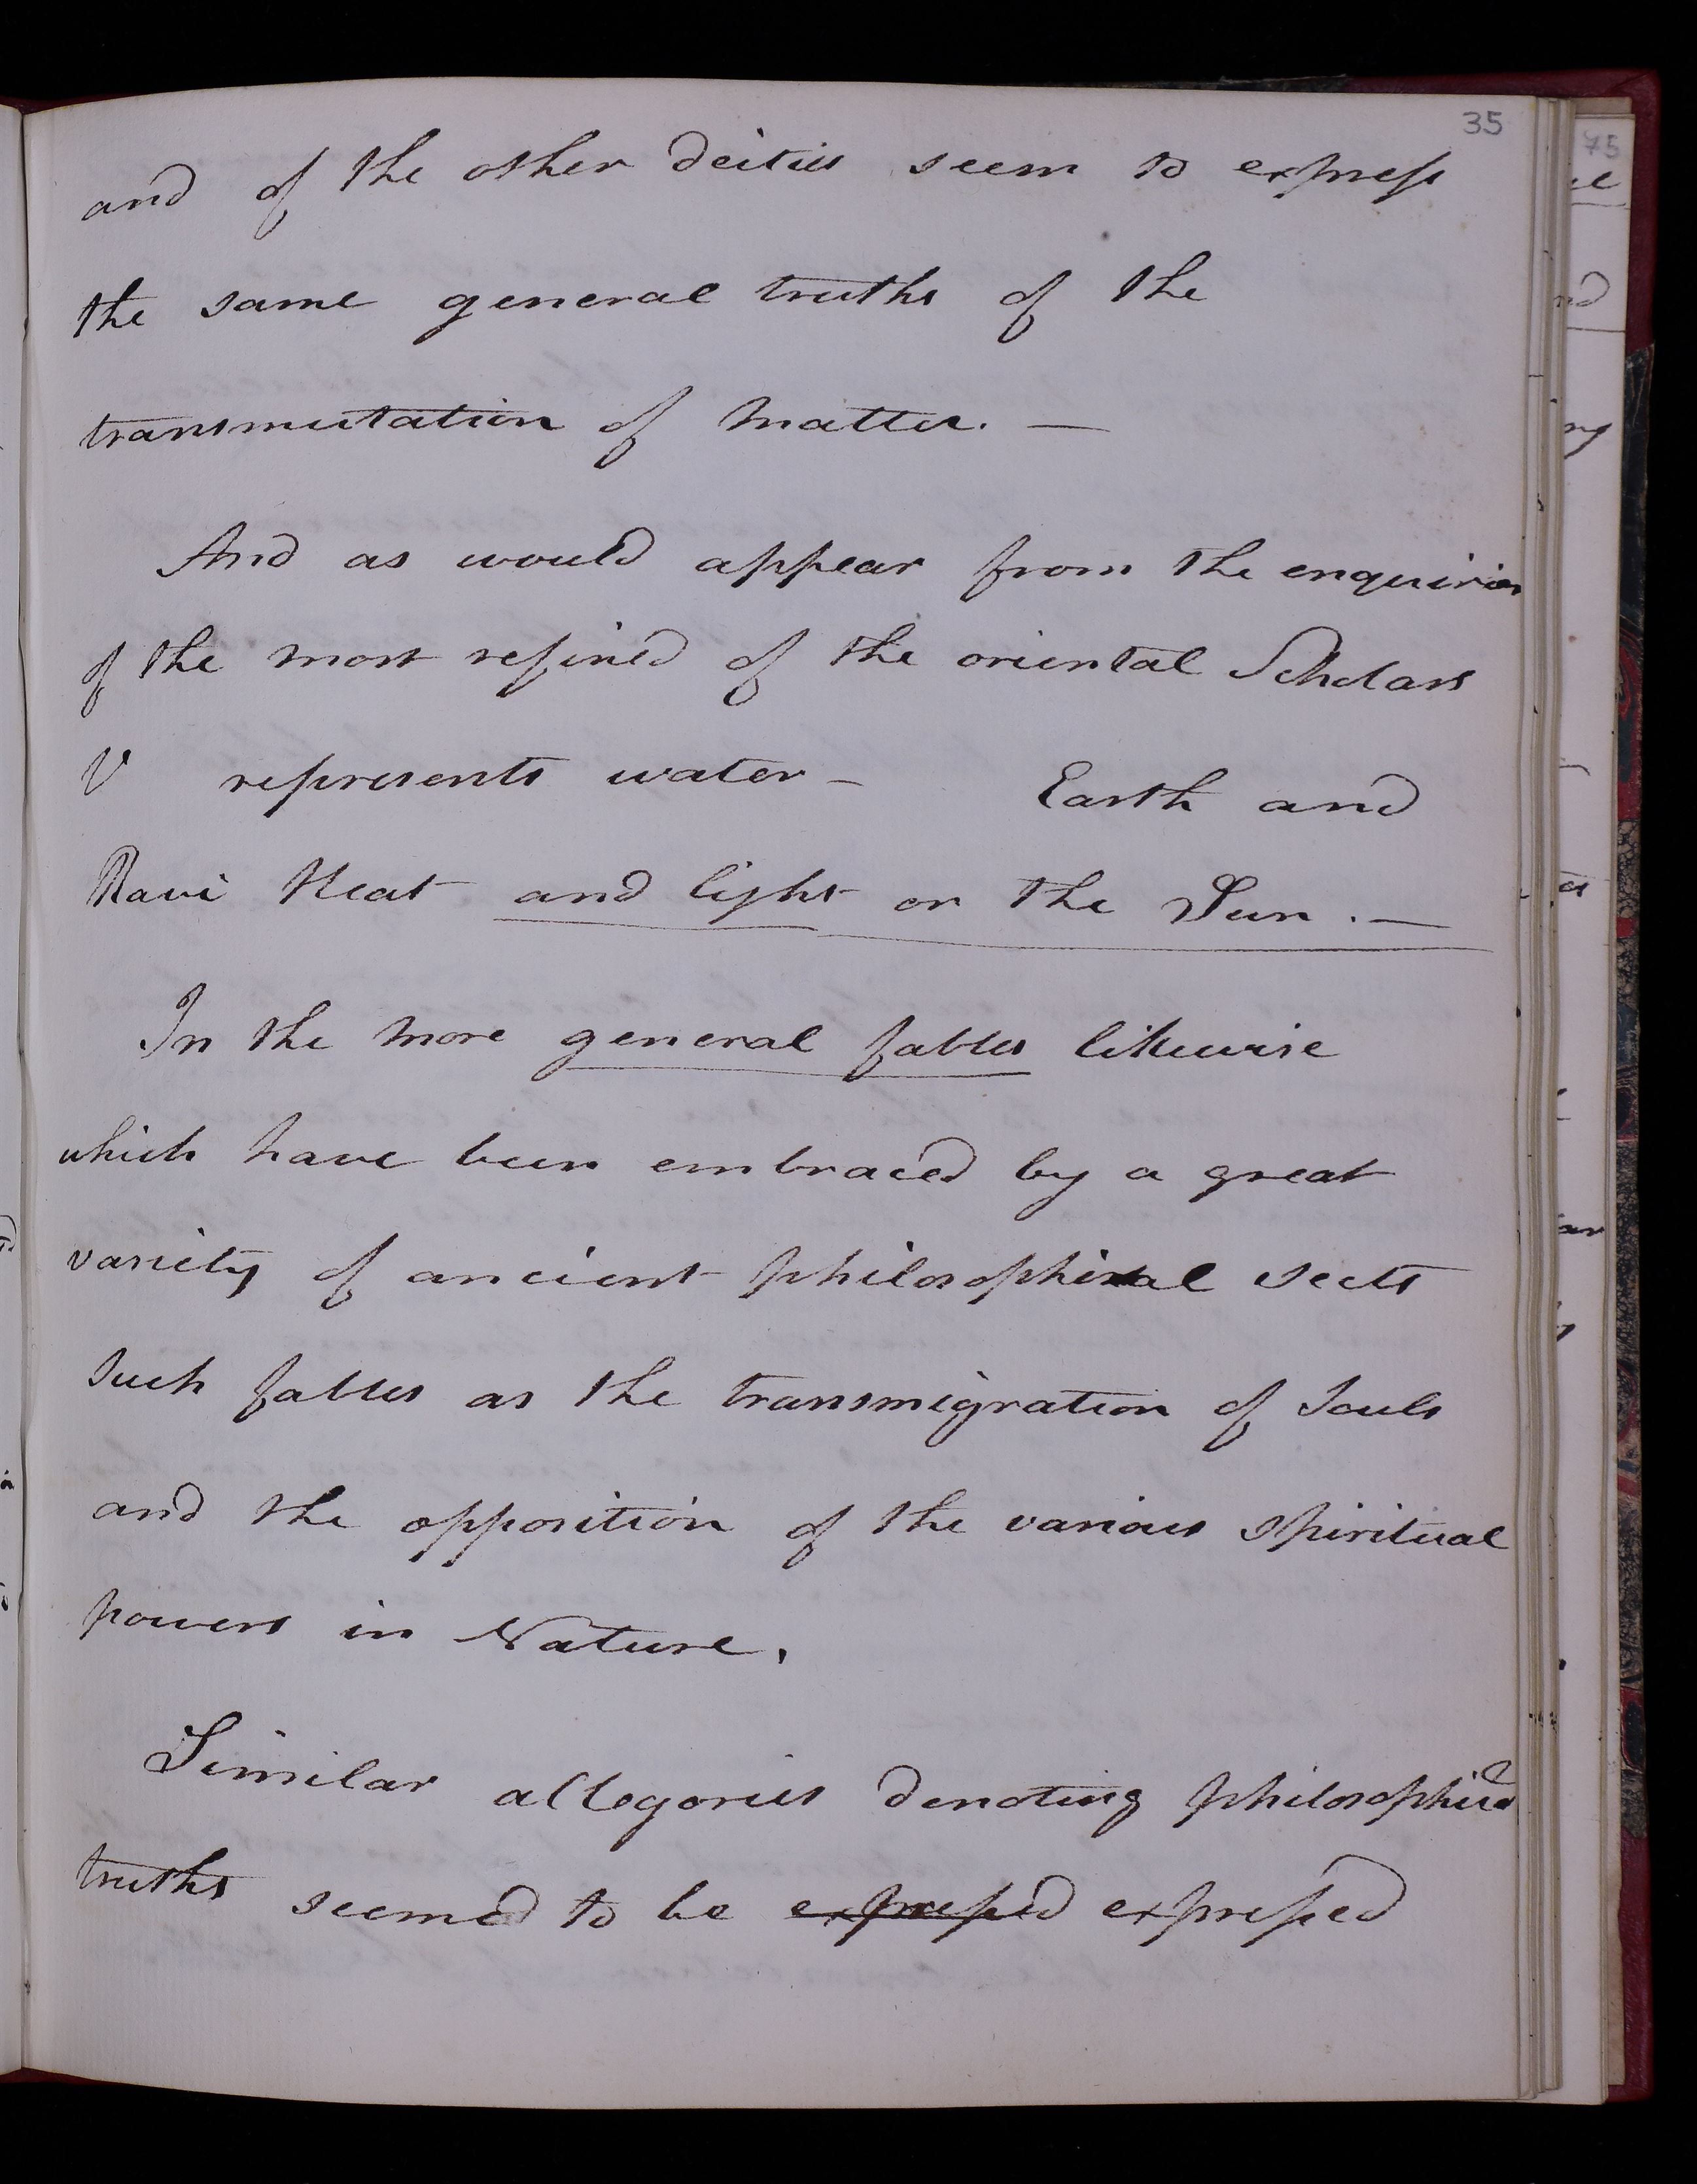 35
and of the other deities seem to express
the same general truths of the
transmutation of matter. —
And as would appear from the enquiries
of the most refined of the oriental Scholars
V represents water – Earth and
Ravi Heat and light or the Sun. —
In the more general fables likewise
which have been embraced by a great
variety of ancient philosophical sects
such fables as the transmigration of Souls
and the opposition of the various spiritual
powers in Nature.
Similar allegories denoting philosophical
truths seemed to be expressed expressed
75
nd